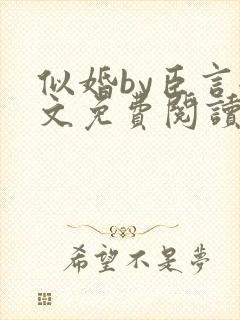 似婚by臣言
文免費閱讀
希望不是夢